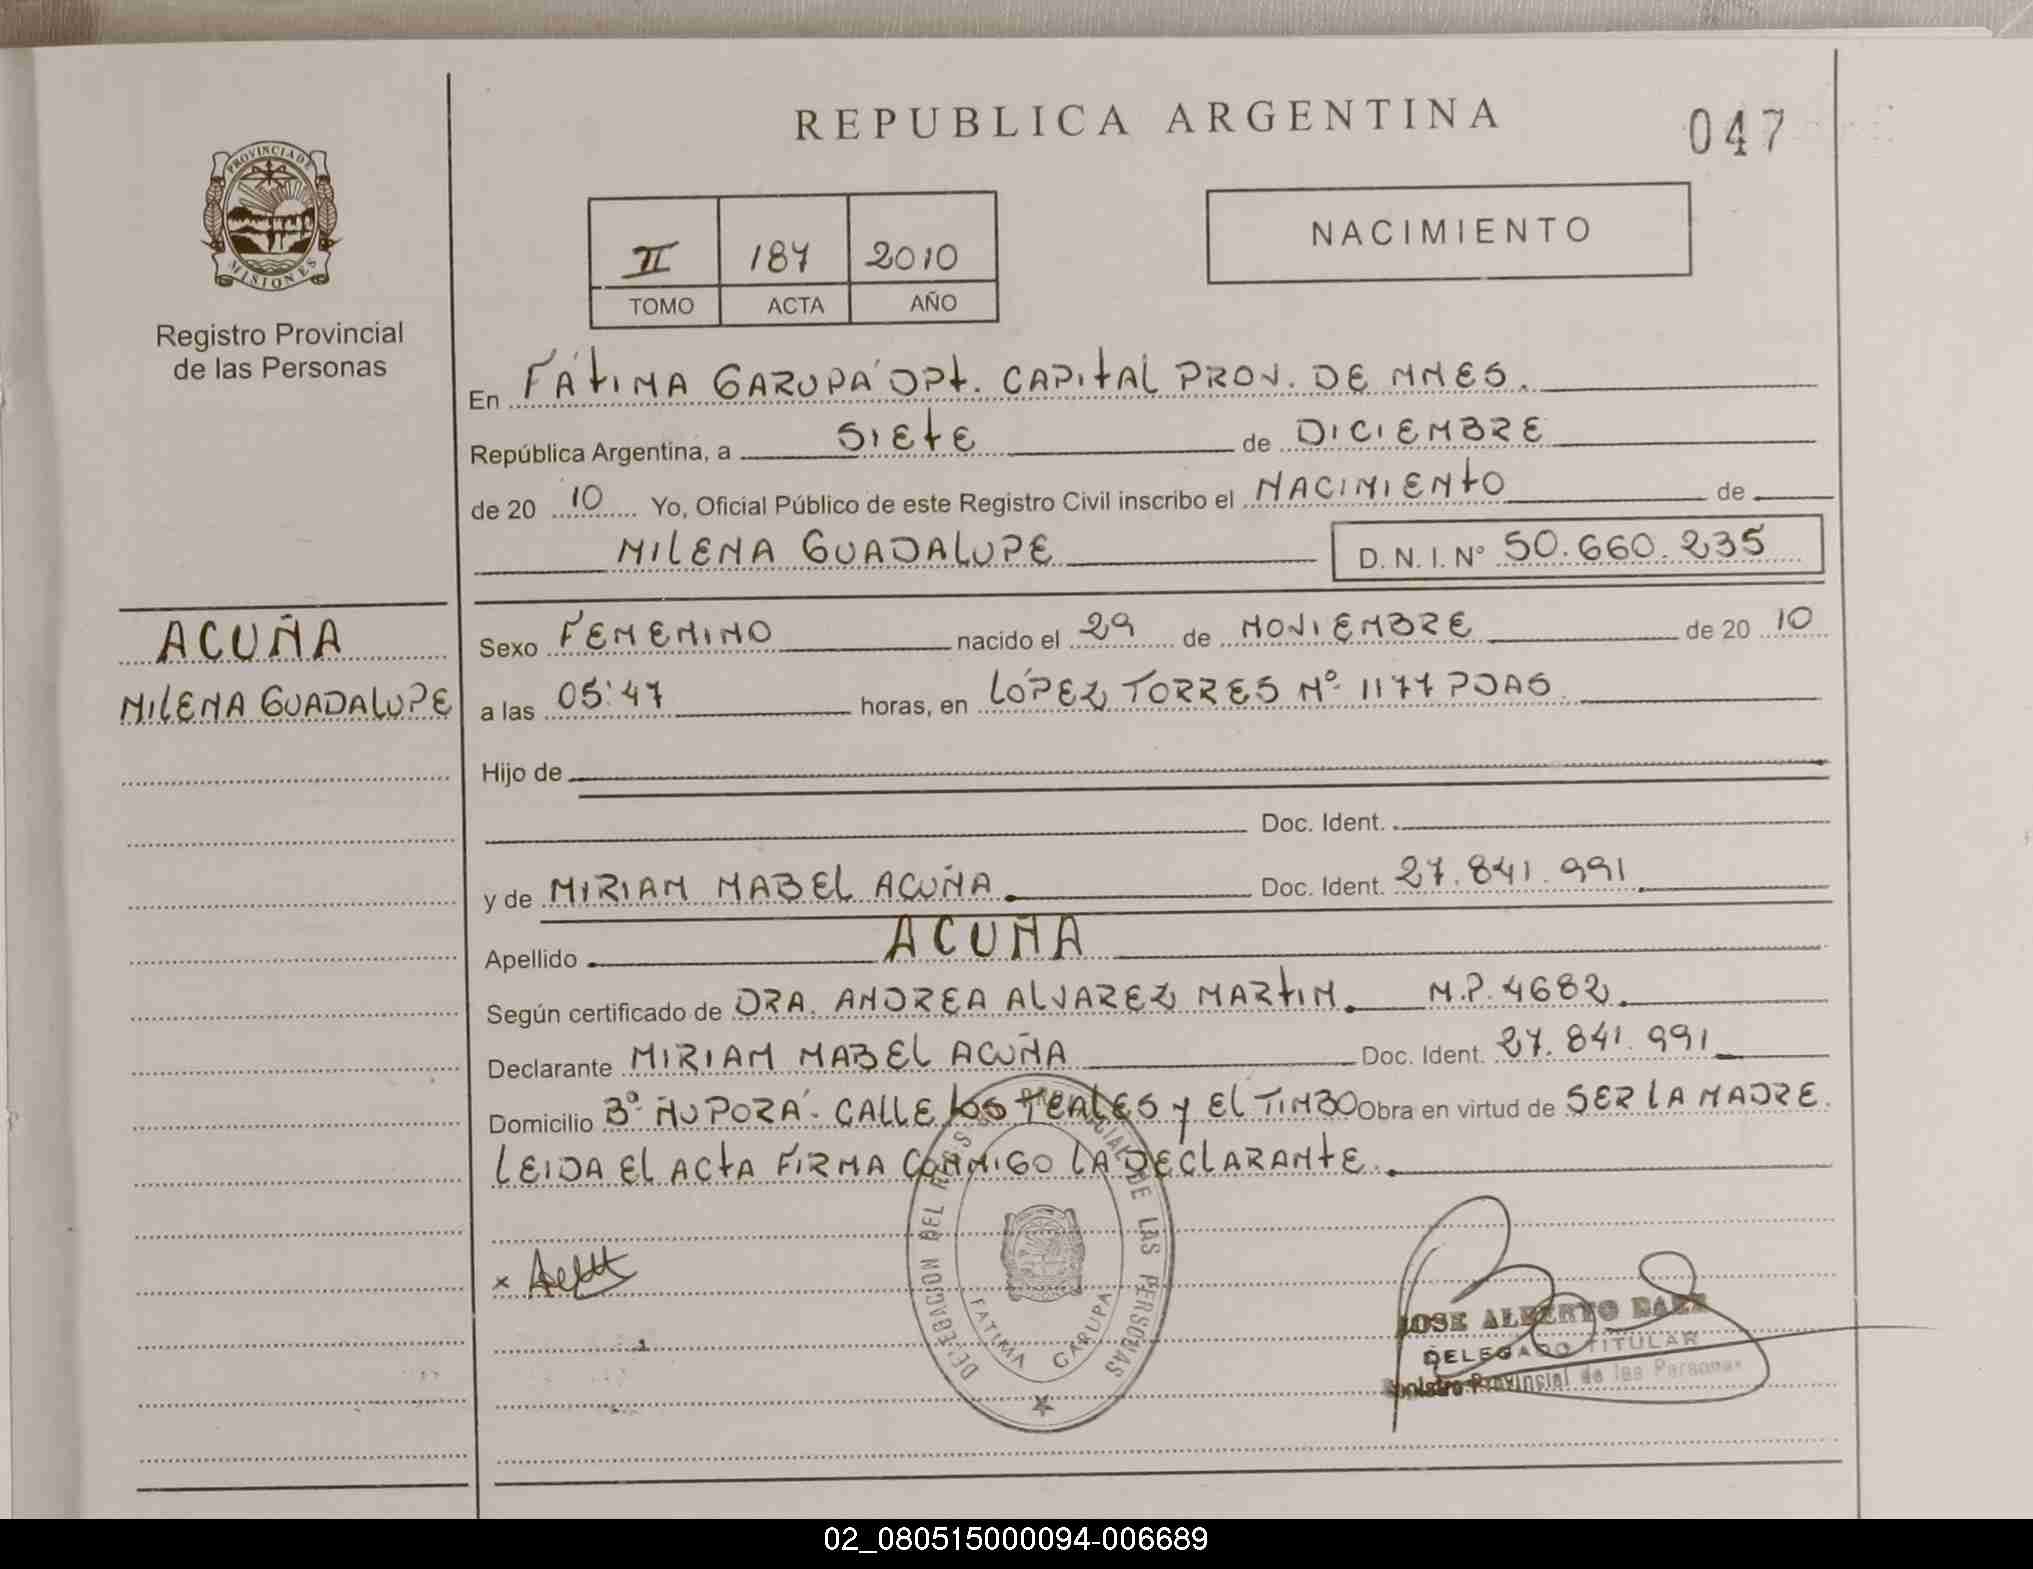 REPUBLICA ARGENTINA
047
PROVINCIA DE
MISIONES
Registro Provincial
de las Personas
II 187 2010
TOMO ACTA AÑO
NACIMIENTO
En FÁTIMA GARUPÁ DPT. CAPITAL PROV. DE MNES.
República Argentina, a SIETE de DICIEMBRE
de 20 10 Yo, Oficial Público de este Registro Civil inscribo el NACIMIENTO de
MILENA GUADALUPE D. N. I. N° 50.660.235
ACUÑA
MILENA GUADALUPE
Sexo FEMENINO nacido el 29 de NOVIEMBRE de 20 10
a las 05:47 horas, en LÓPEZ TORRES Nº 1177 PDAS.
Hijo de
Doc. Ident.
y de MIRIAM MABEL ACUÑA Doc. Ident. 27.841.991
Apellido ACUÑA
Según certificado de DRA. ANDREA ALVAREZ MARTIN. M.P. 4682
Declarante MIRIAM MABEL ACUÑA Doc. Ident. 27.841.991
Domicilio Bº ÑU PORÁ. CALLE LOS TEALES Y EL TIMBO Obra en virtud de SER LA MADRE.
LEIDA EL ACTA FIRMA CONMIGO LA DECLARANTE.
DELEGACION DEL PROVINCIAL DE LAS PERSONAS
FATIMA GARUPA
JOSE ALBERTO BAEZ
DELEGADO TITULAR
Registro Provincial de las Personas
02_080515000094-006689